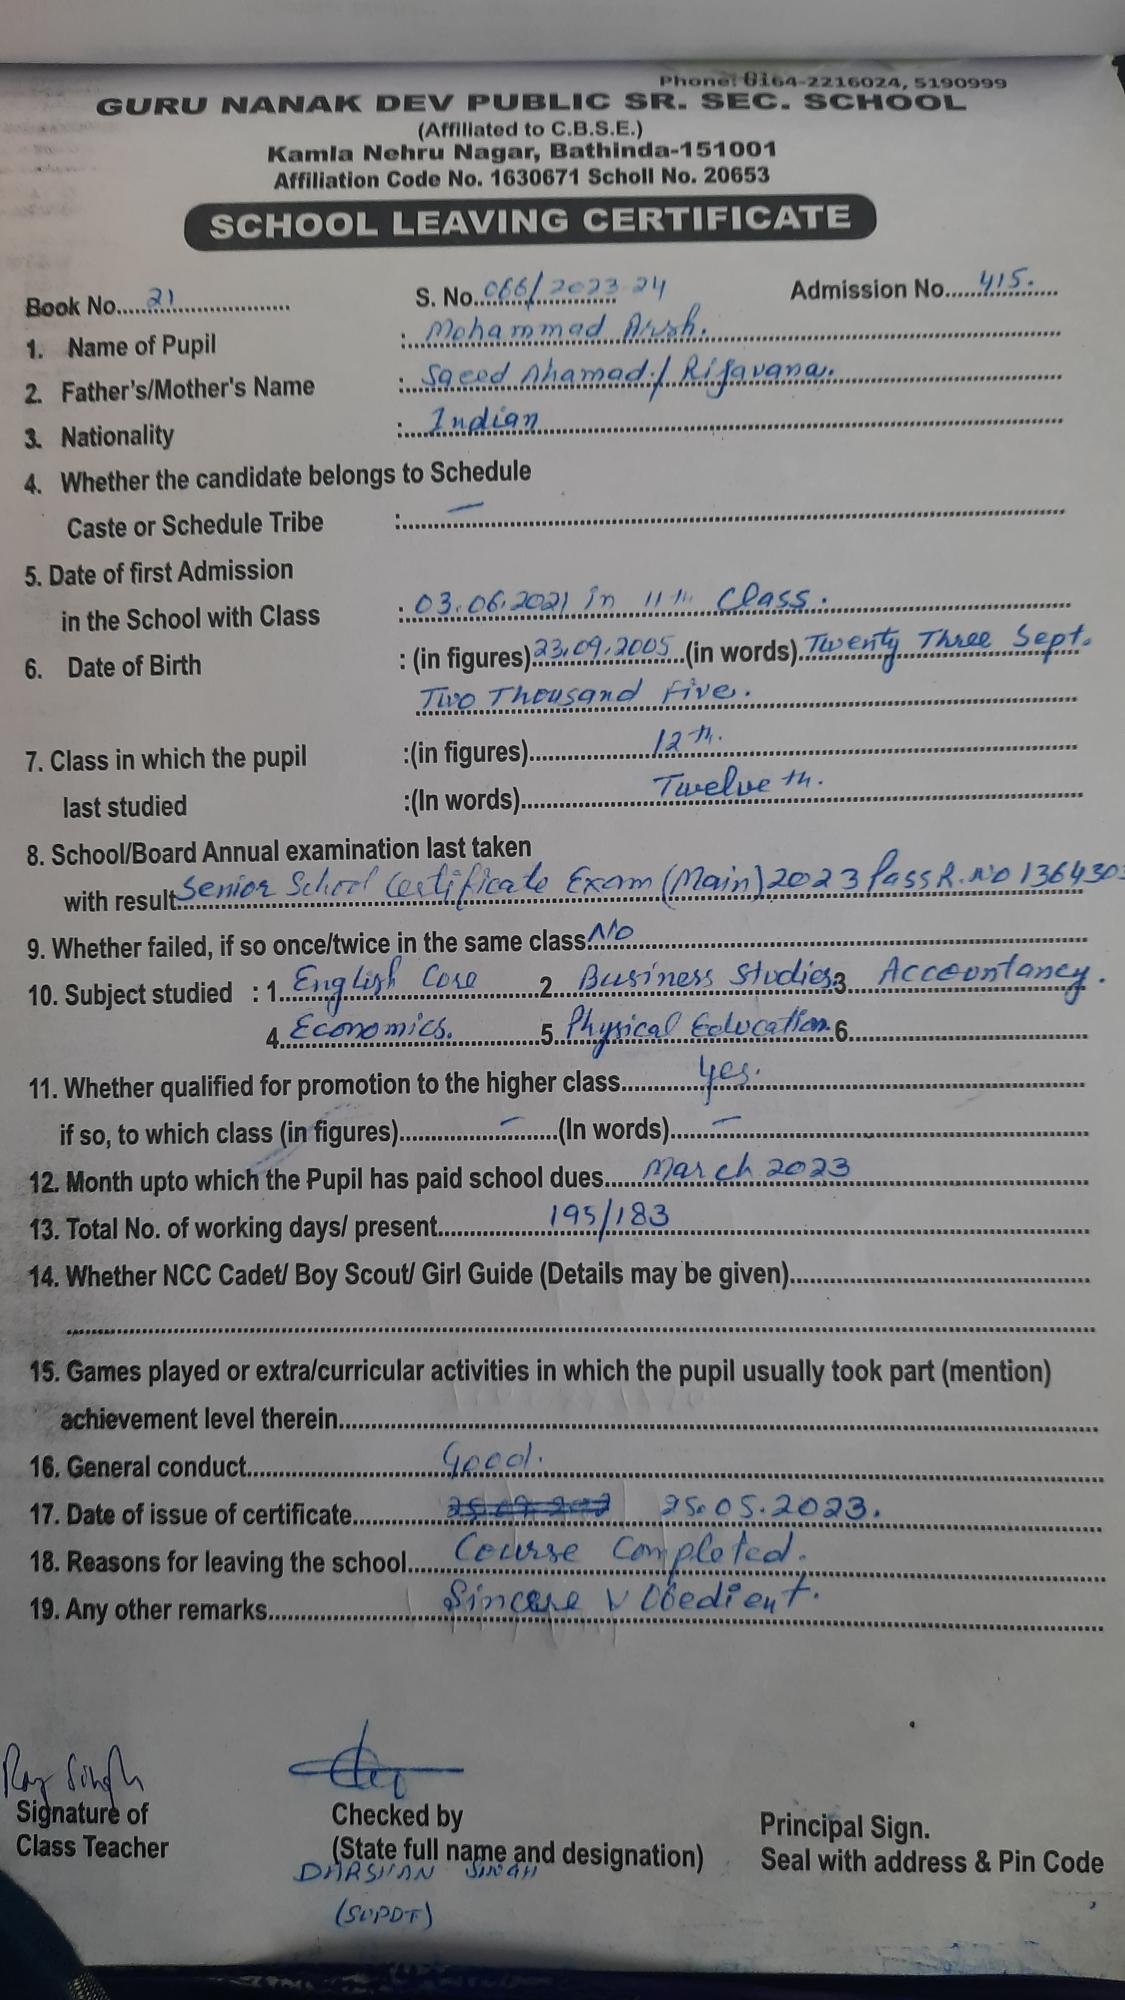 Phone: 0164-2216024, 5190999
GURU NANAK DEV PUBLIC SR. SEC. SCHOOL
(Affiliated to C.B.S.E.)
Kamla Nehru Nagar, Bathinda-151001
Affiliation Code No. 1630671 Scholl No. 20653
SCHOOL LEAVING CERTIFICATE
Book No. 21 S. No. 066/2023 24 Admission No. 415.
1. Name of Pupil : Mohammad Arsh.
2. Father's/Mother's Name : Saeed Ahamad / Rijavana.
3. Nationality : Indian
4. Whether the candidate belongs to Schedule
Caste or Schedule Tribe : —
5. Date of first Admission
in the School with Class : 03.06.2021 in 11th Class.
6. Date of Birth : (in figures) 23.09.2005 (in words) Twenty Three Sept.
Two Thousand Five.
7. Class in which the pupil :(in figures) 12th.
last studied :(In words) Twelveth.
8. School/Board Annual examination last taken
with result Senior School Certificate Exam (Main) 2023 Pass R.No
9. Whether failed, if so once/twice in the same class No
10. Subject studied : 1. English Core 2. Business Studies 3. Accountancy.
4. Economics. 5. Physical Education 6.
11. Whether qualified for promotion to the higher class Yes.
if so, to which class (in figures) — (In words) —
12. Month upto which the Pupil has paid school dues March 2023
13. Total No. of working days/ present 195/183
14. Whether NCC Cadet/ Boy Scout/ Girl Guide (Details may be given)
15. Games played or extra/curricular activities in which the pupil usually took part (mention)
achievement level therein
16. General conduct Good.
17. Date of issue of certificate 25.05.2023.
18. Reasons for leaving the school Course Completed.
19. Any other remarks Sincere & Obedient.
Singh
Signature of Class Teacher
Checked by
(State full name and designation)
DARSHAN SINGH
(SUPDT)
Principal Sign.
Seal with address & Pin Code